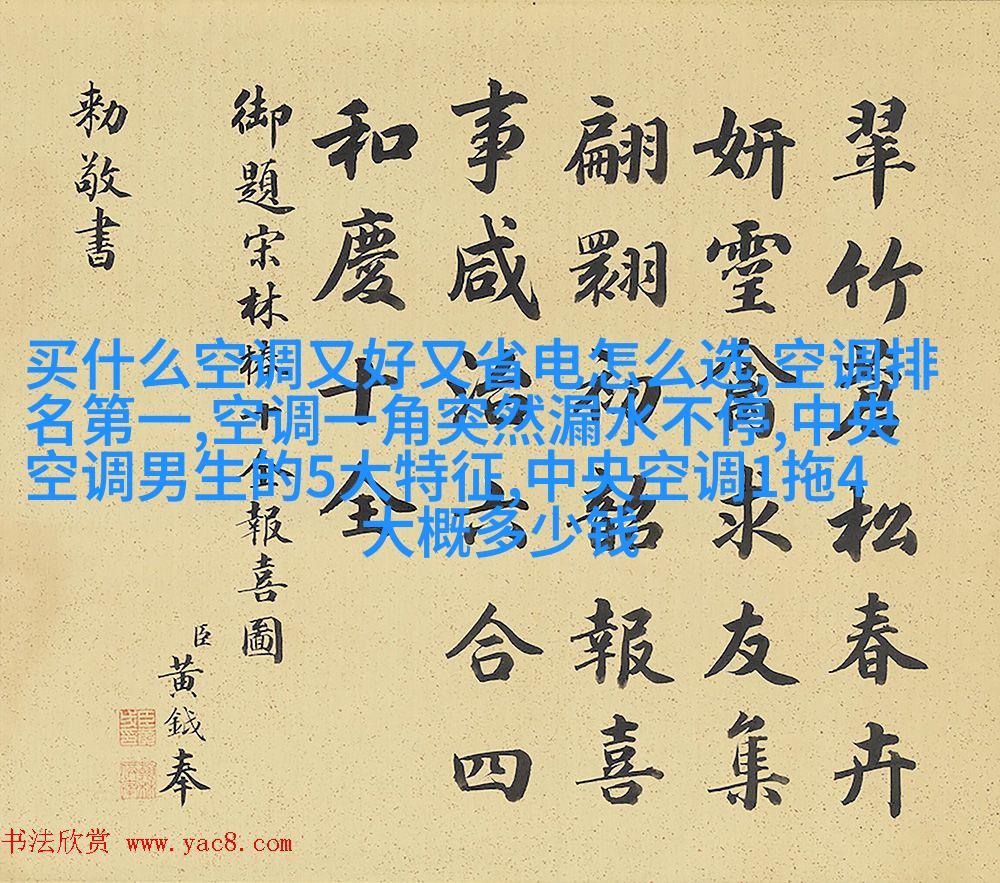 翠竹松春卉
妍靈禽求友集
翩翾初韶報喜
事咸洽六合四
和慶十全
御題宋林椿十全報喜圖
臣黄鉞奉
勅敬書
买什么空调又好又省电怎么选,空调排
名第一,空调一角突然漏水不停,中央
空调男生的5大特征,中央空调1拖4
大概多少钱
书法欣赏 www.yac8.com